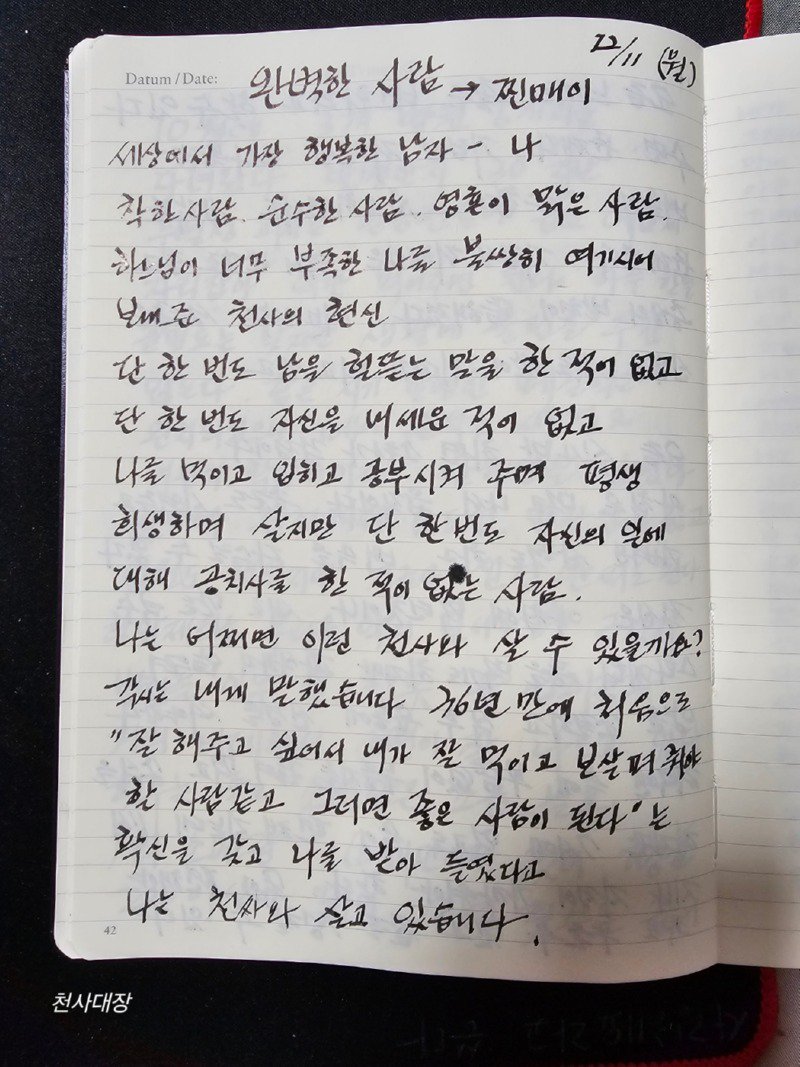 22/11 (월)
Datum / Date: 완벽한 사람 → 찐매이
세상에서 가장 행복한 남자 - 나
착한사람. 순수한 사람. 영혼이 맑은 사람.
하느님이 너무 부족한 나를 불쌍히 여기시어
보내준 천사의 현신
단 한 번도 남을 헐뜯는 말을 한 적이 없고
단 한 번도 자신을 내세운 적이 없고
나를 먹이고 입히고 공부시켜 주며 평생
희생하며 살지만 단 한번도 자신의 일에
대해 공치사를 한 적이 없는 사람.
나는 어쩌면 이런 천사와 살 수 있을까요?
각시는 내게 말했습니다 36년만에 처음으로
"잘 해주고 싶어서 내가 잘 먹이고 보살펴 줘야
할 사람같고 그러면 좋은 사람이 된다"는
확신을 갖고 나를 받아 들였다고
나는 천사와 살고 있습니다.
42
천사대장